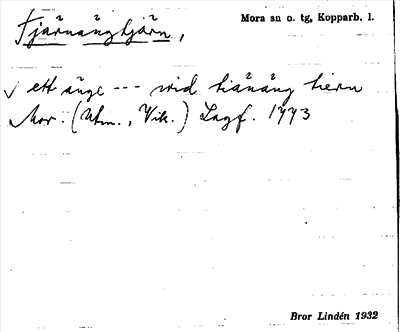 Tjärnängtjärn,
Mora sn o. tg, Kopparb. l.
√ ett änge --- wid tiänäng tiern
Mor. (Utm., Vik.) Lagf. 1773
Bror Lindén 1932